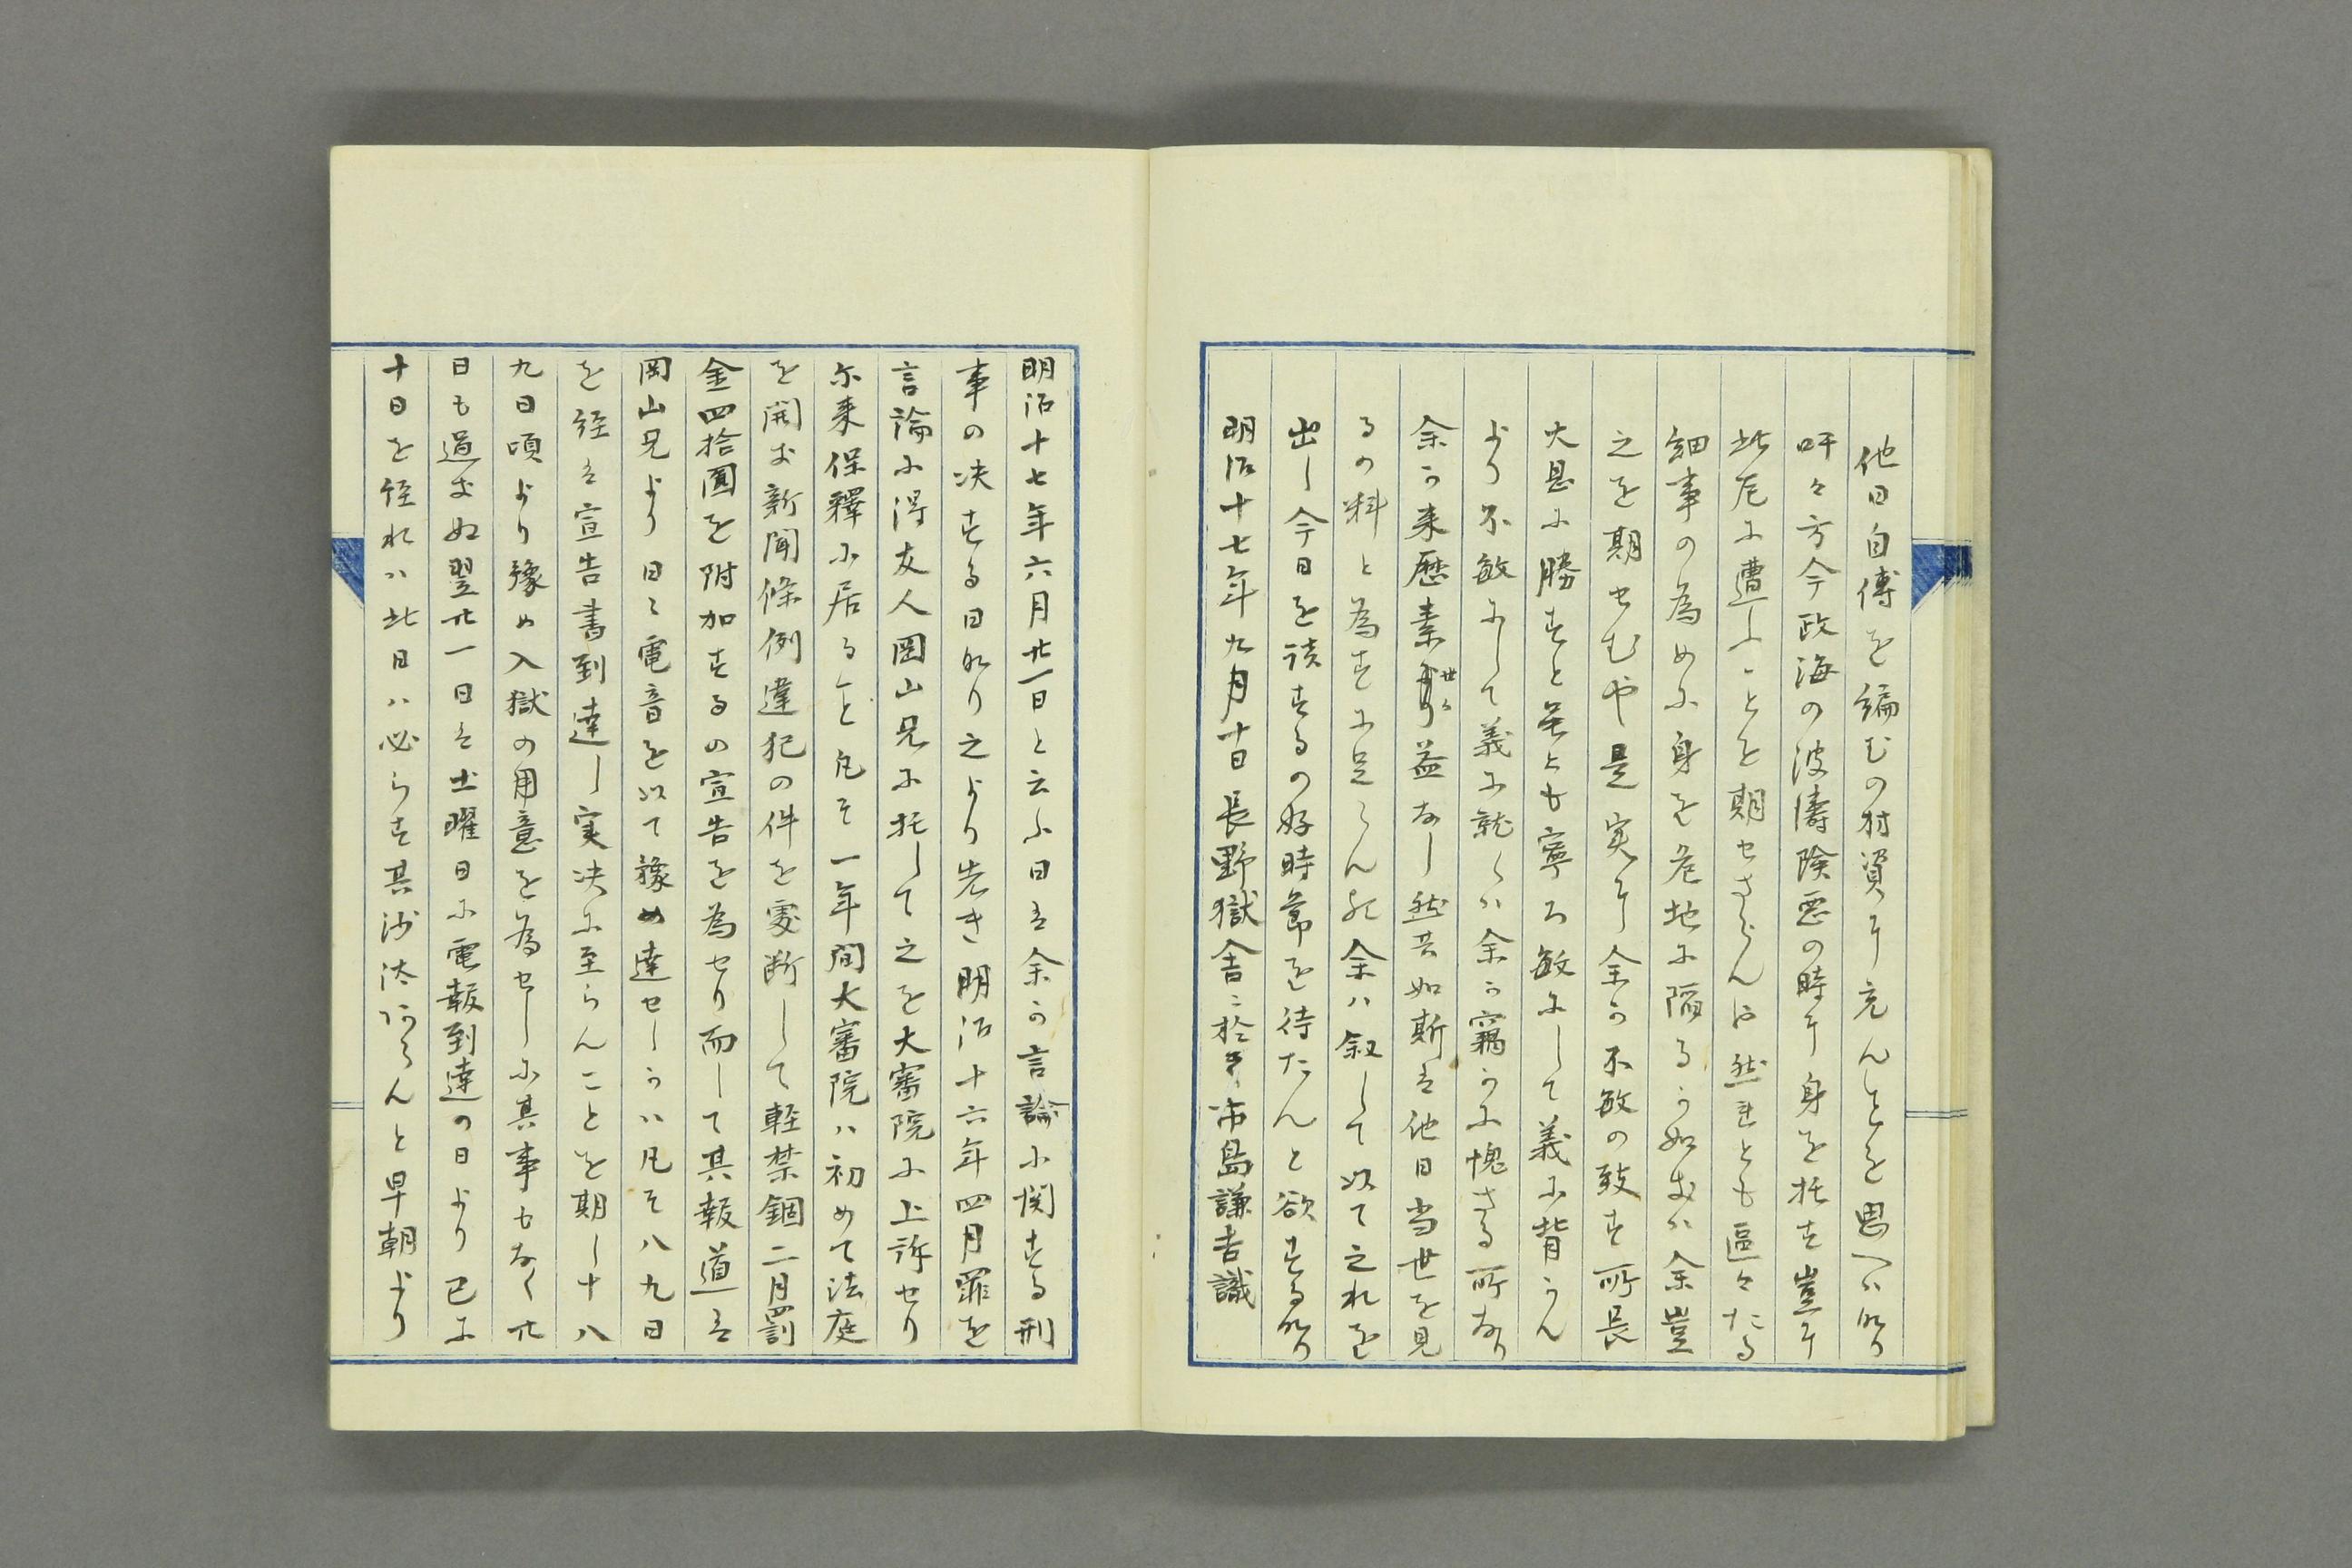 他日自傳を編むの材資に充んとを思へハなり
吁々方今政海の波濤険悪の時に身を托す豈に
此厄に遭ふことを期せさらんや然れとも區々たる
細事の為めに身を危地に陥るゝか如きハ余豈
之を期せむや是実に余か不敏の致す所長
大息に勝すと虽とも寧ろ敏にして義に背かん
より不敏にして義に就くハ余か竊かに愧さる所なり
余か来歴素より世に益なし然共如斯き他日当世を見
るの料と為すに足らん歟余ハ叙して以て之れを
出し今日を談するの好時節を待たんと欲するなり
明治十七年九月十日長野獄舎ニ於テ市島謙吉識
明治十七年六月廿一日と云ふ日は余か言論に関する刑
事の决する日なり之より先き明治十六年四月罪を
言論に得友人岡山兄に托して之を大審院に上訴せり
尓来保釋に居ること凡そ一年間大審院ハ初めて法庭
を開き新聞條例違犯の件を處断して軽禁錮二月罰
金四拾圓を附加するの宣告を為せり而して其報道は
岡山兄より日々電音を以て豫め達せしかハ凡そ八九日
を経は宣告書到達し実决に至らんことを期し十八
九日頃より豫め入獄の用意を為せしに其事もなく廿
日も過きぬ翌廿一日は土曜日に電報到達の日より已に
十日を経れハ此日ハ必らす其沙汰あらんと早朝より